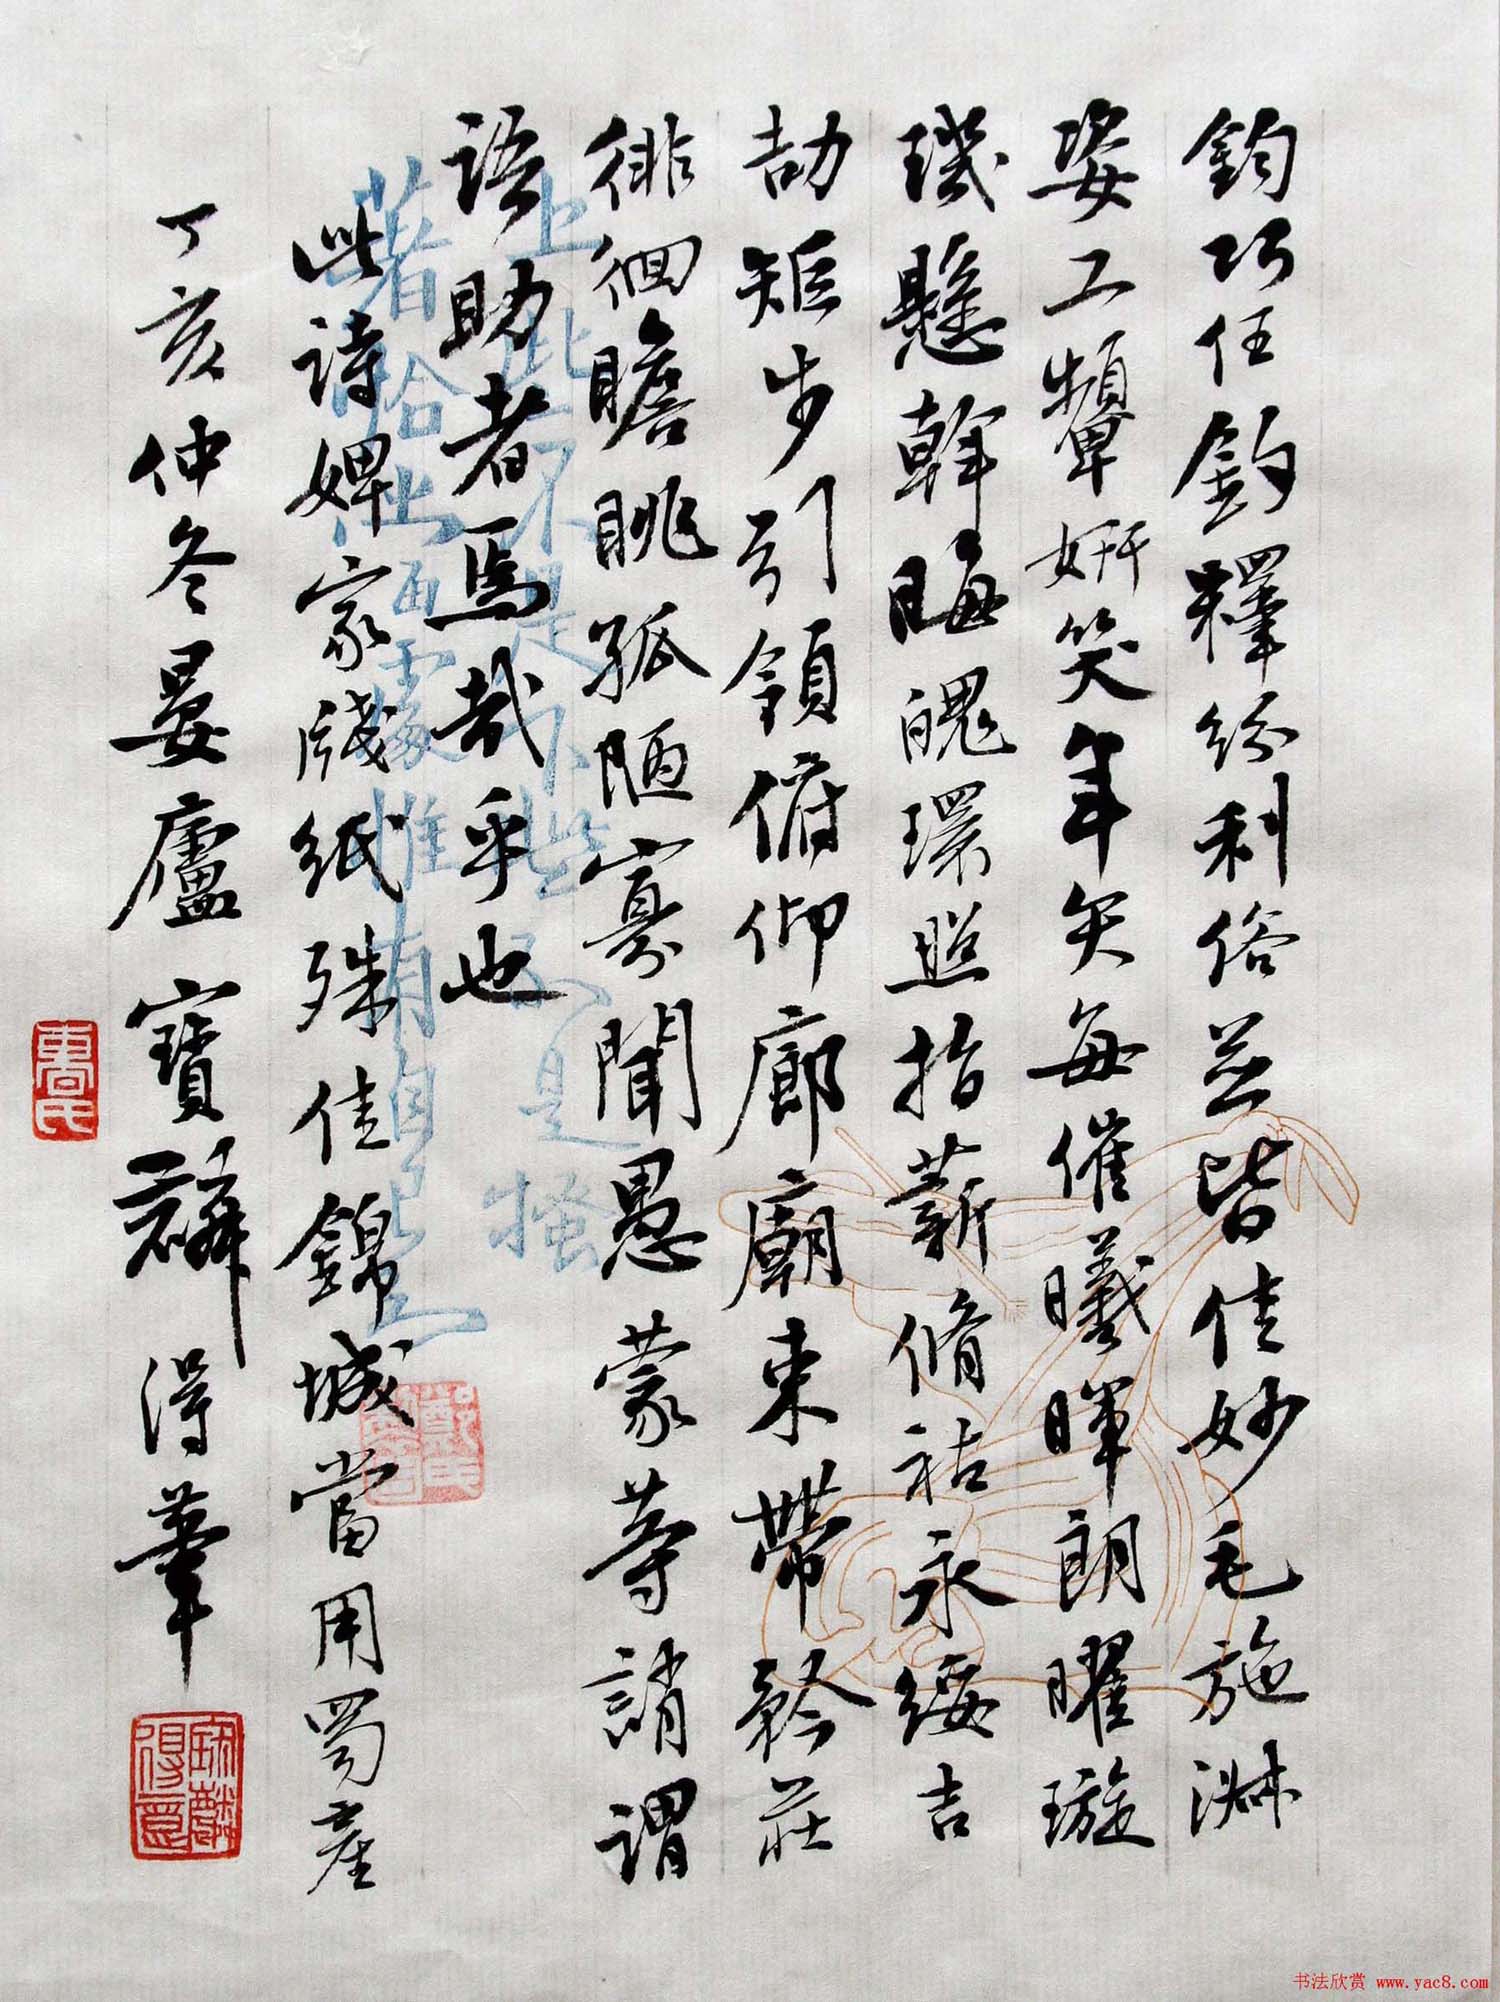 鈞巧任釣釋紛利俗並皆佳妙毛施淑
姿工顰妍笑年矢每催曦暉朗曜璇
璣懸斡晦魄環照指薪脩祜永綏吉
劭矩步引領俯仰廊廟束帶矜莊
徘徊瞻眺孤陋寡聞愚蒙等誚謂
語助者焉哉乎也
此詩婢家牋紙殊佳錦城當用蜀產
丁亥仲冬晏廬寶得筆
书法欣赏 www.yac8.com